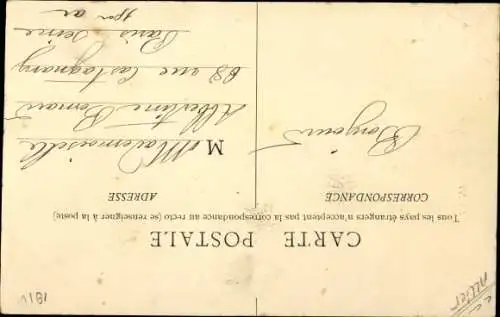 CARTE POSTALE
Tous les pays étrangers n'acceptent pas la correspondance au recto (se renseigner à la poste)
CORRESPONDANCE
ADRESSE
Bonjour
M Mademoiselle
Albertine Bernard
68 rue Castagnary
Paris Seine
Allier